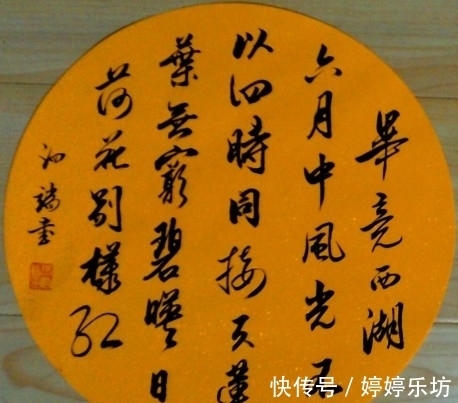 畢竟西湖
六月中風光不
以四時同接天蓮
葉無窮碧暎日
荷花別樣紅
書
快传号/婷婷乐坊